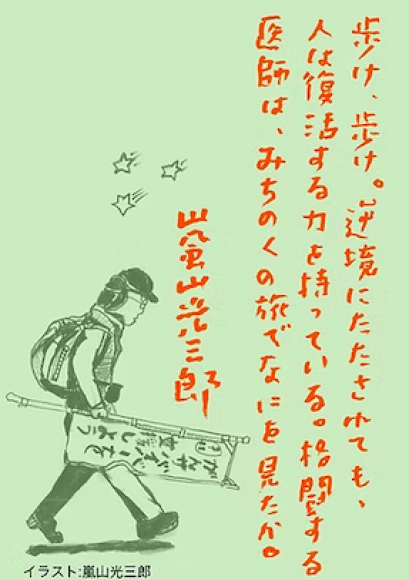 歩け、歩け。逆境にたたされても、
人は復活する力を持っている。格闘する
医師は、みちのくの旅でなにを見たか。
嵐山光三郎
がんサバイバーを
支援しよう
イラスト:嵐山光三郎